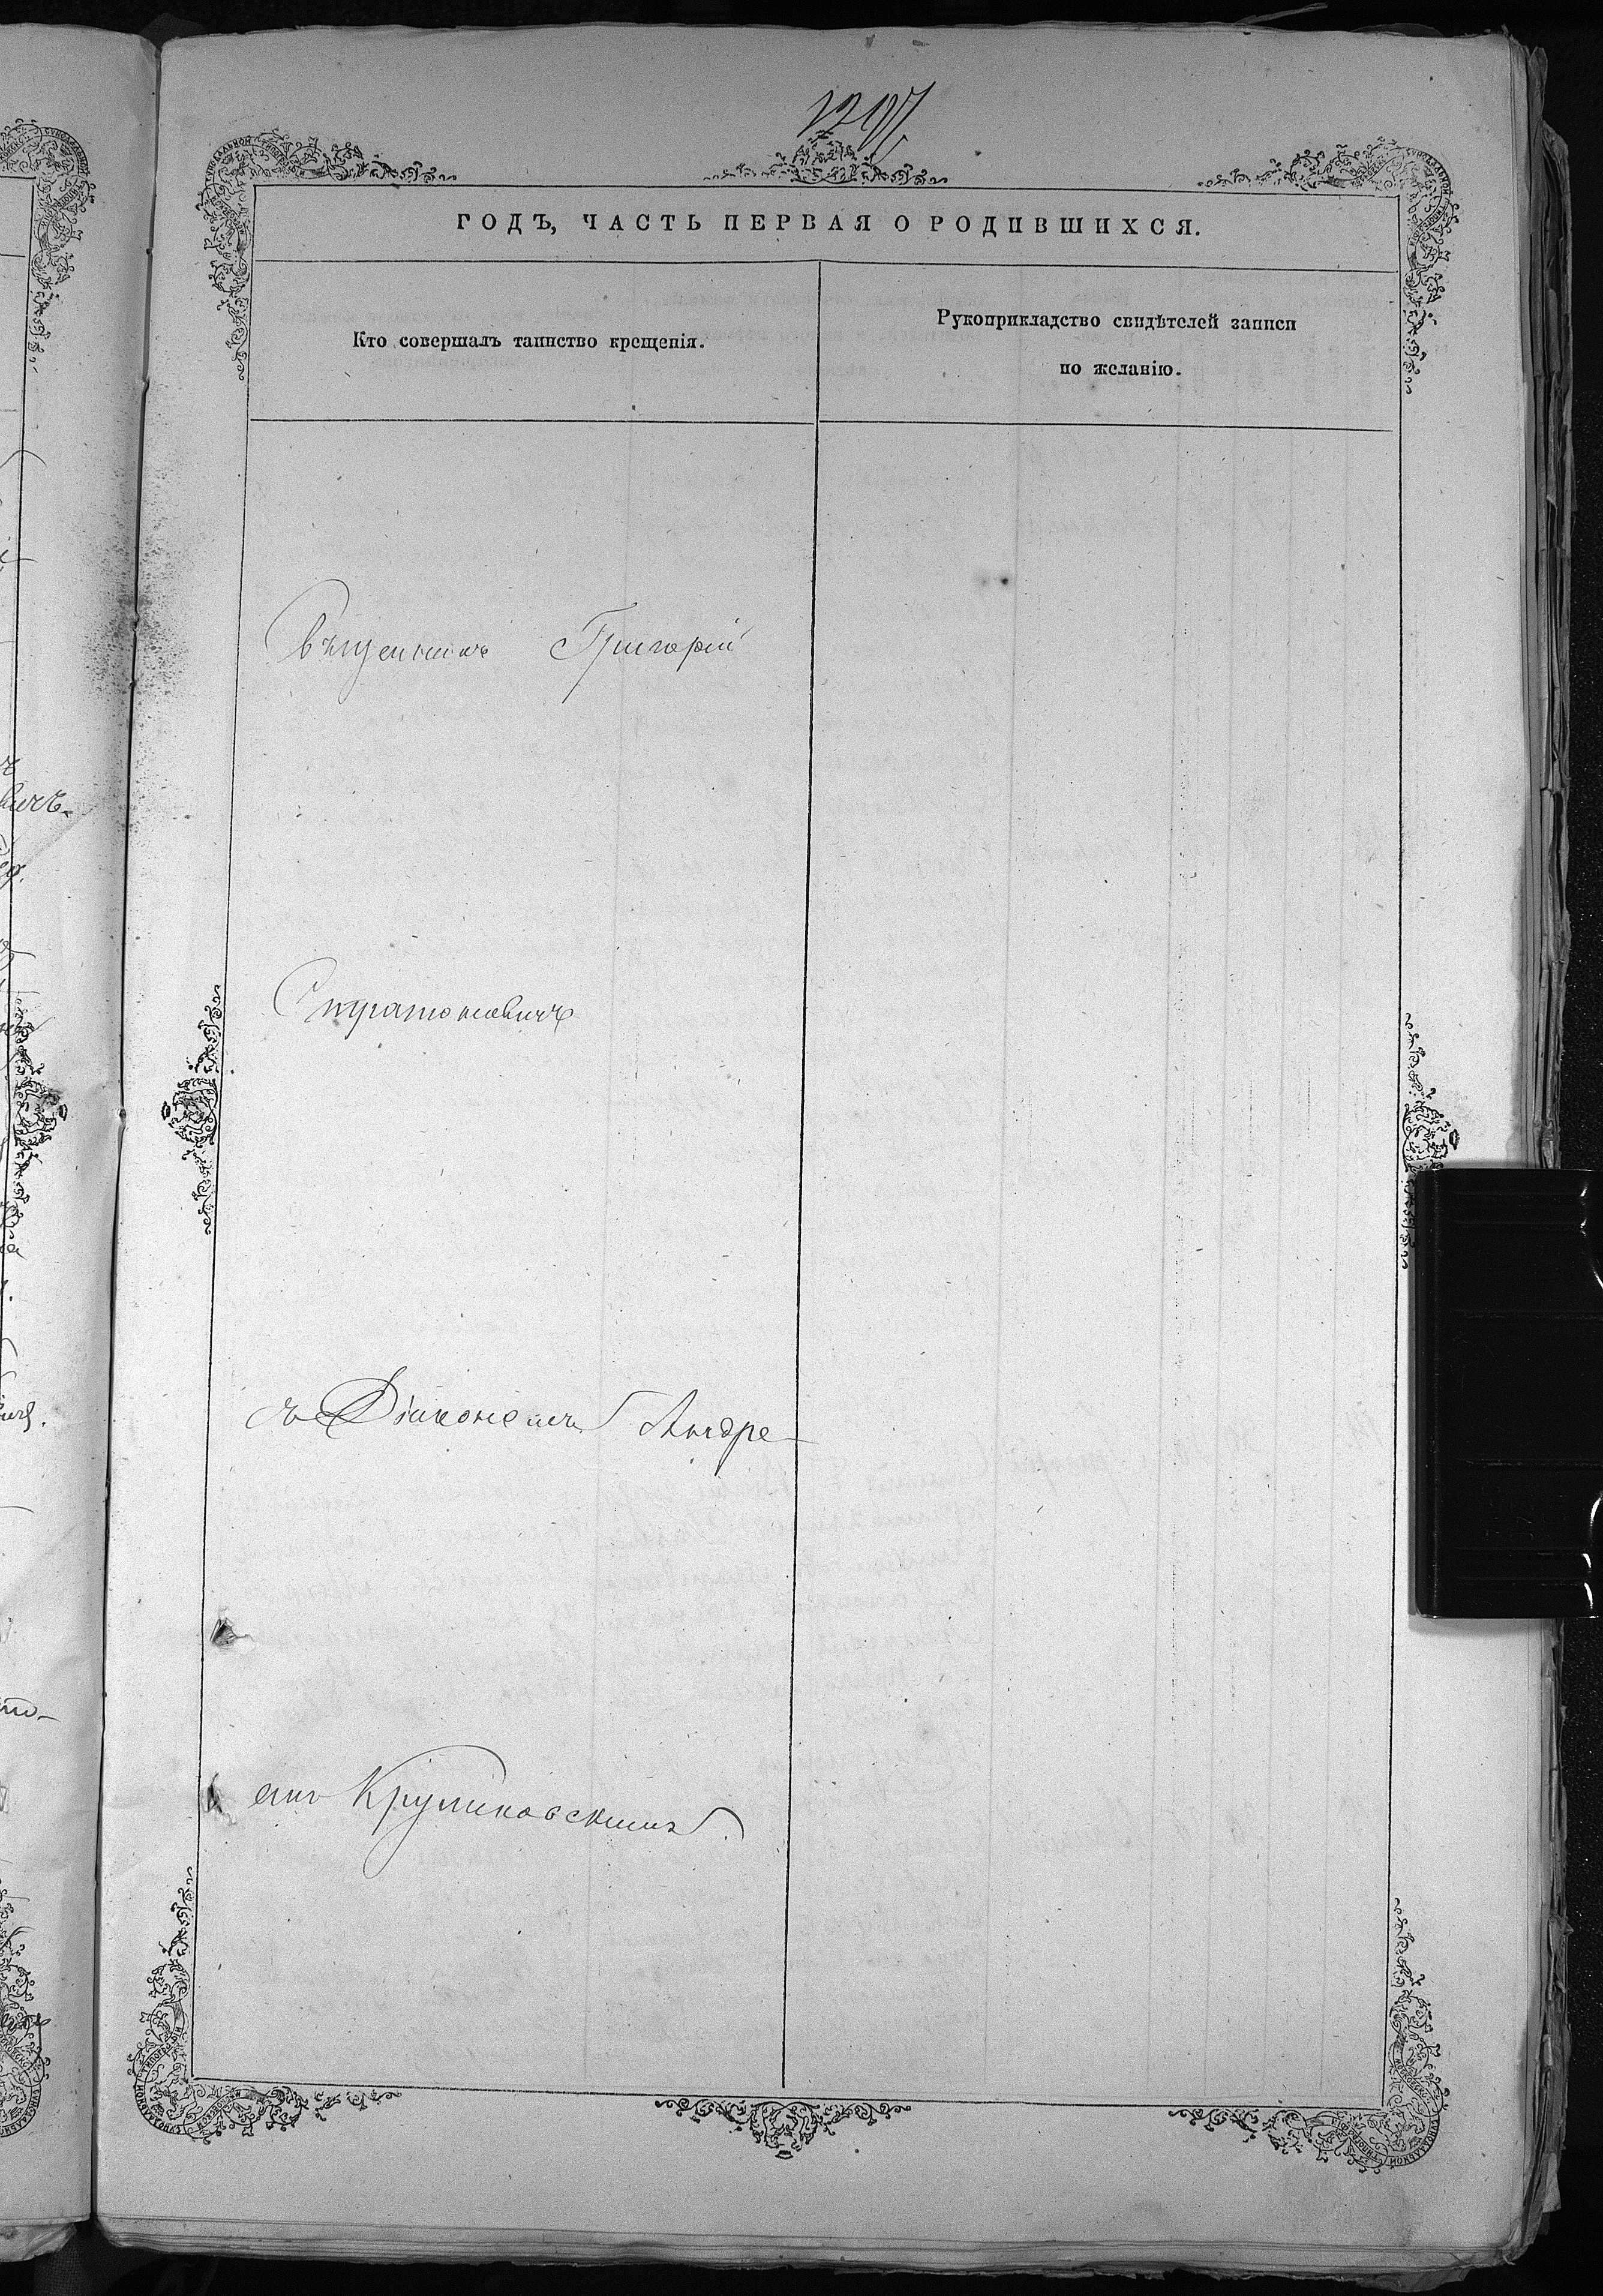 ГОДЪ, ЧАСТЬ ПЕРВАЯ О РОДИВШИХСЯ.
Кто совершалъ таинство крещенія.
Рукоприкладство свидѣтелей записи
по желанію.
Священникъ Григорій
Стратоновичъ
съ Діакономъ Андре-
емъ Крупиковскимъ.